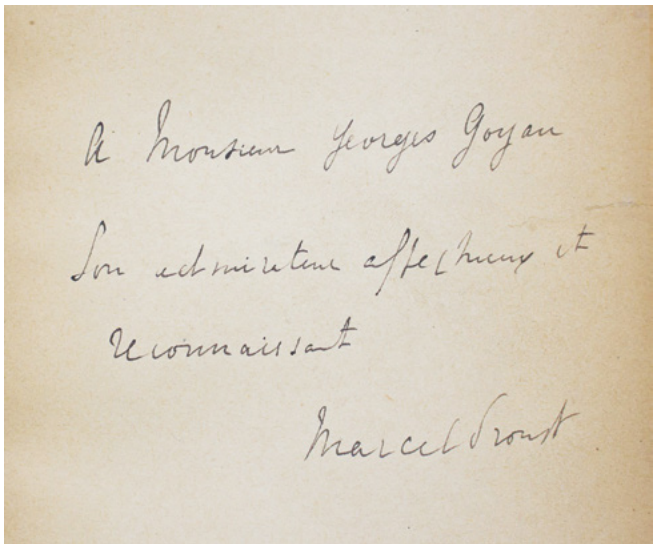 A Monsieur Georges Goyau
Son admirateur affectueux et
reconnaissant
Marcel Proust